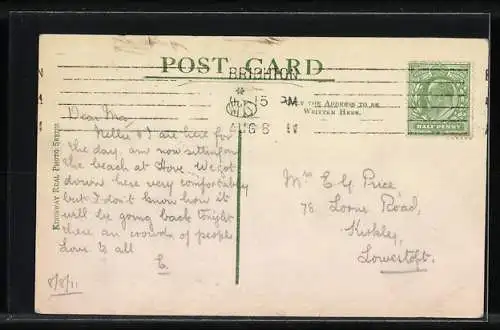 POST CARD
BRIGHTON
15 PM
AUG 8 11
THE ADDRESS TO BE
WRITTEN HERE.
HALFPENNY
KINGSWAY REAL PHOTO SERIES
Dear Ma,
Nellie & I are here for
the day am now sitting on
the beach at Hove We got
down here very comfortably
but I don't know how it
will be going back tonight
there are crowds of people
Love to all
E.
8/8/11
Mrs E G Price
78 Lorne Road,
Kirkley,
Lowestoft.